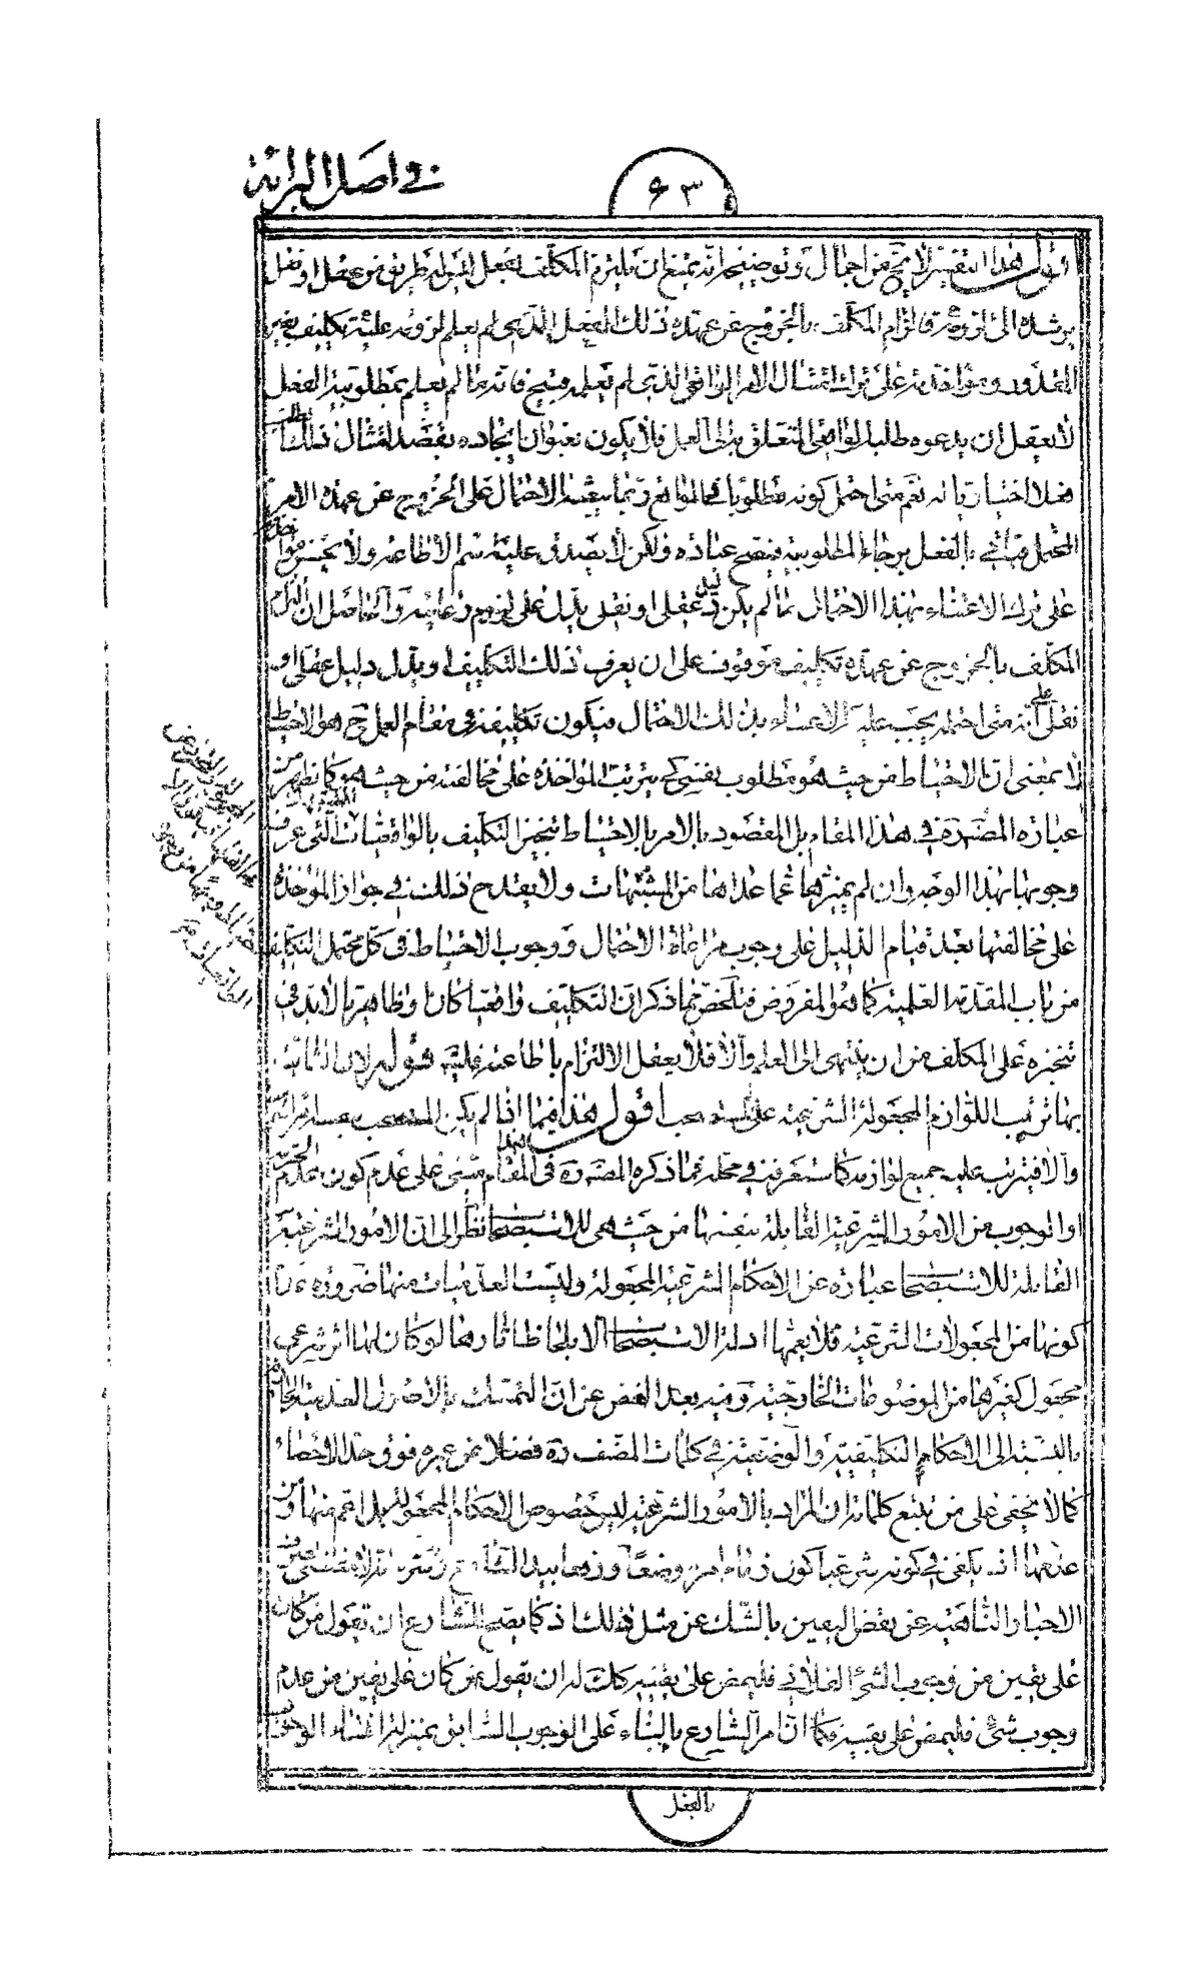 في اصل البرائة
٦٣
اقول هذا التفسير لا يخ عن اجمال وتوضيحه انه يمتنع ان يلتزم المكلف بفعل ليس له طريق من عقل او نقل
يرشده الى لزومه فالزام المكلف بالخروج عن عهدة ذلك الفعل الذي لم يعلم لزومه عليه تكليف بغير
المقدور ومؤاخذته على ترك امتثال الامر الواقعي الذي لم يعلمه قبيح فانه ما لم يعلم بمطلوبية الفعل
لا يعقل ان يدعوه طلبه الواقعي المتعلق به الى العمل فلا يكون بعنوان ايجاده بقصد امتثال ذلك الطلب
فعلا اختياريا له نعم متى احتمل كونه مطلوبا في الواقع ربما يبعثه الاحتمال على الخروج عن عهدة الامر
المحتمل فيأتي بالفعل برجاء المطلوبية فيصح عبادة ولكن لا يصدق عليه اسم الاطاعة ولا يحسن مؤاخذته
على ترك الاعتناء بهذا الاحتمال ما لم يكن دليل عقلي او نقلي يدل على لزوم رعايته والحاصل ان الزام
المكلف بالخروج عن عهدة تكليف موقوف على ان يعرف ذلك التكليف او يدل دليل عقلي او
نقلي على انه متى احتمله يجب عليه الاعتناء بذلك الاحتمال فيكون تكليفه في مقام العمل ح هو الاحتياط
لا بمعنى ان الاحتياط من حيث هو مطلوب نفسي كي يترتب المؤاخذة على مخالفته من حيث هو كما يظهر من
عبارة المصنف ره في هذا المقام بل المقصود بالامر بالاحتياط تنجيز التكليف بالواقعيات التي عرف
وجوبها بهذا الوجه وان لم يميزها عما عداها من المشتبهات ولا يقدح ذلك في جواز المؤاخذة
على مخالفتها بعد قيام الدليل على وجوب مراعاة الاحتمال ووجوب الاحتياط في كل محتمل التكليف
من باب المقدمة العلمية كما هو المفروض فتلخص مما ذكر ان التكليف واقعيا كان او ظاهريا لابد في
تنجزه على المكلف من ان ينتهي الى العلم والا فلا يعقل الالتزام باطاعته فليتأمل قوله لان الثابت
بها ترتيب اللوازم المجعولة الشرعية على المستصحب اقول هذا فيما اذا لم يكن المستصحب بنفسه امرا شرعيا
والا فيترتب عليه جميع لوازمه كما ستعرفه في محله فما ذكره المصنف ره في المقام مبني على عدم كون عدم التحريم
او الوجوب من الامور الشرعية القابلة بنفسها من حيث هي للاستصحاب نظرا الى ان الامور الشرعية
القابلة للاستصحاب عبارة عن الاحكام الشرعية المجعولة وليست العدميات منها ضرورة عدم
كونها من المجعولات الشرعية فلا يعمها ادلة الاستصحاب الا بلحاظ اثارها لو كان لها اثر شرعي
مجعول كغيرها من الموضوعات الخارجية وفيه بعد الغض عن ان التمسك بالاصول العدمية الجارية
بالنسبة الى الاحكام التكليفية والوضعية في كلمات المصنف ره فضلا عن غيره فوق حد الاحصاء
كما لا يخفى على من تتبع كلماته ان المراد بالامور الشرعية ليس خصوص الاحكام المجعولة بل اعم منها ومن
عدمها اذ يكفي في كونه شرعيا كون زمام امره وضعا ورفعا بيد الشارع
الاخبار الناهية عن نقض اليقين بالشك عن مثل ذلك اذ كما يصح للشارع ان يقول من كان
على يقين من وجوب الشئ الفلاني فليمض على يقينه كك له ان يقول من كان على يقين من عدم
وجوب شئ فليمض على يقينه فكما ان امر الشارع بالبناء على الوجوب السابق بمنزلة انشاء الوجوب
بالفعل